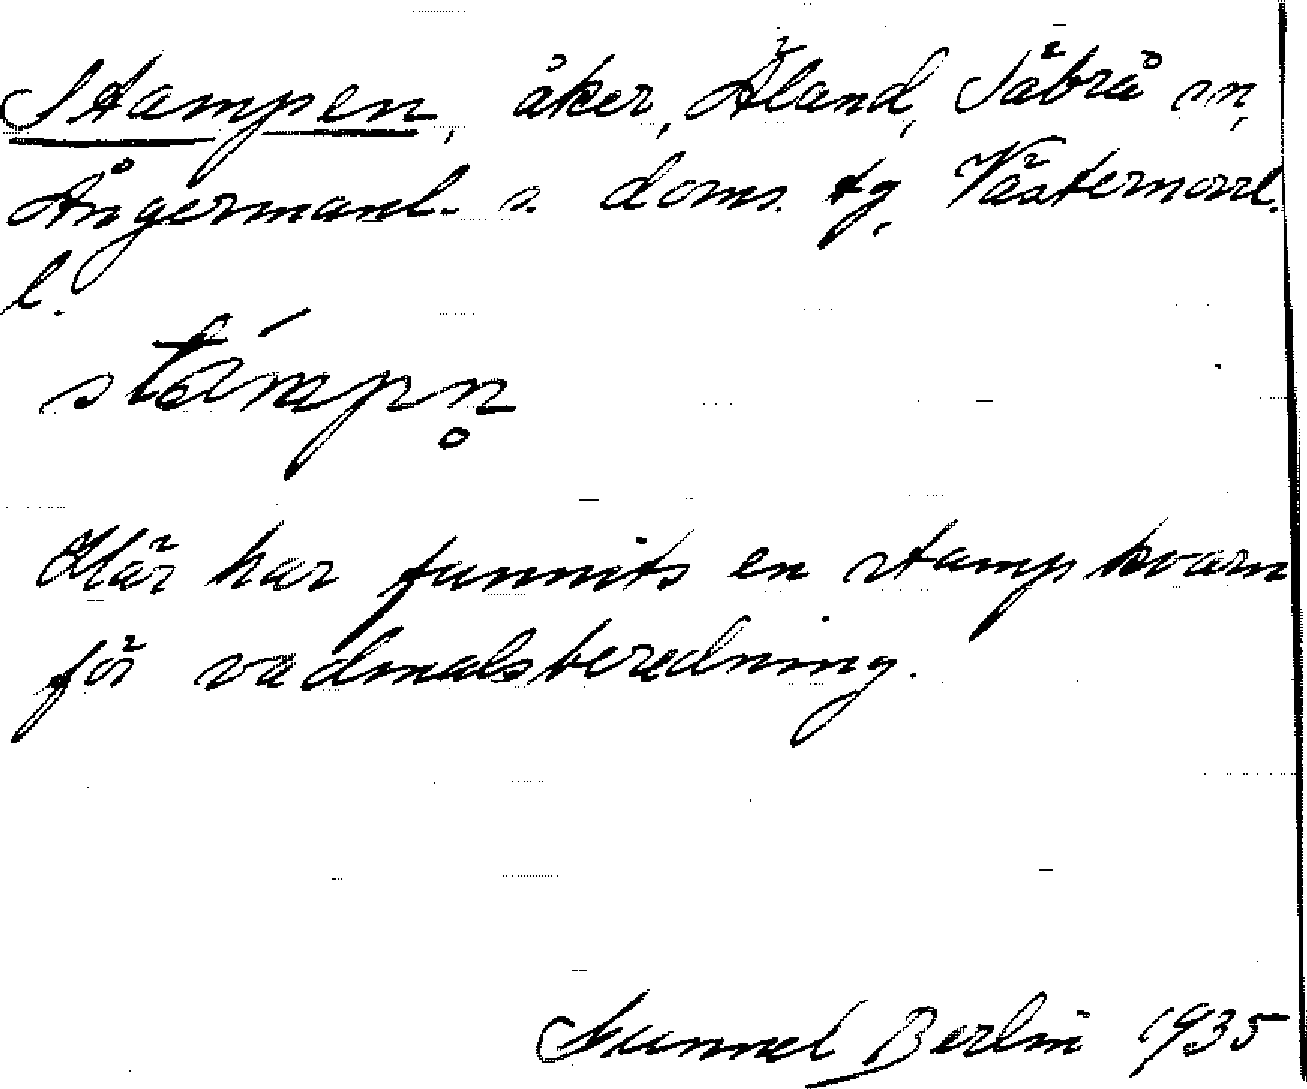 Stampen, åker, Äland, Säbrå sn,
Ångermanl. s. doms. tg, Västernorrl.
l.
stámpn̥
Här har funnits en stampkvarn
för vadmalsberedning.
Gunnel Berlin 1935